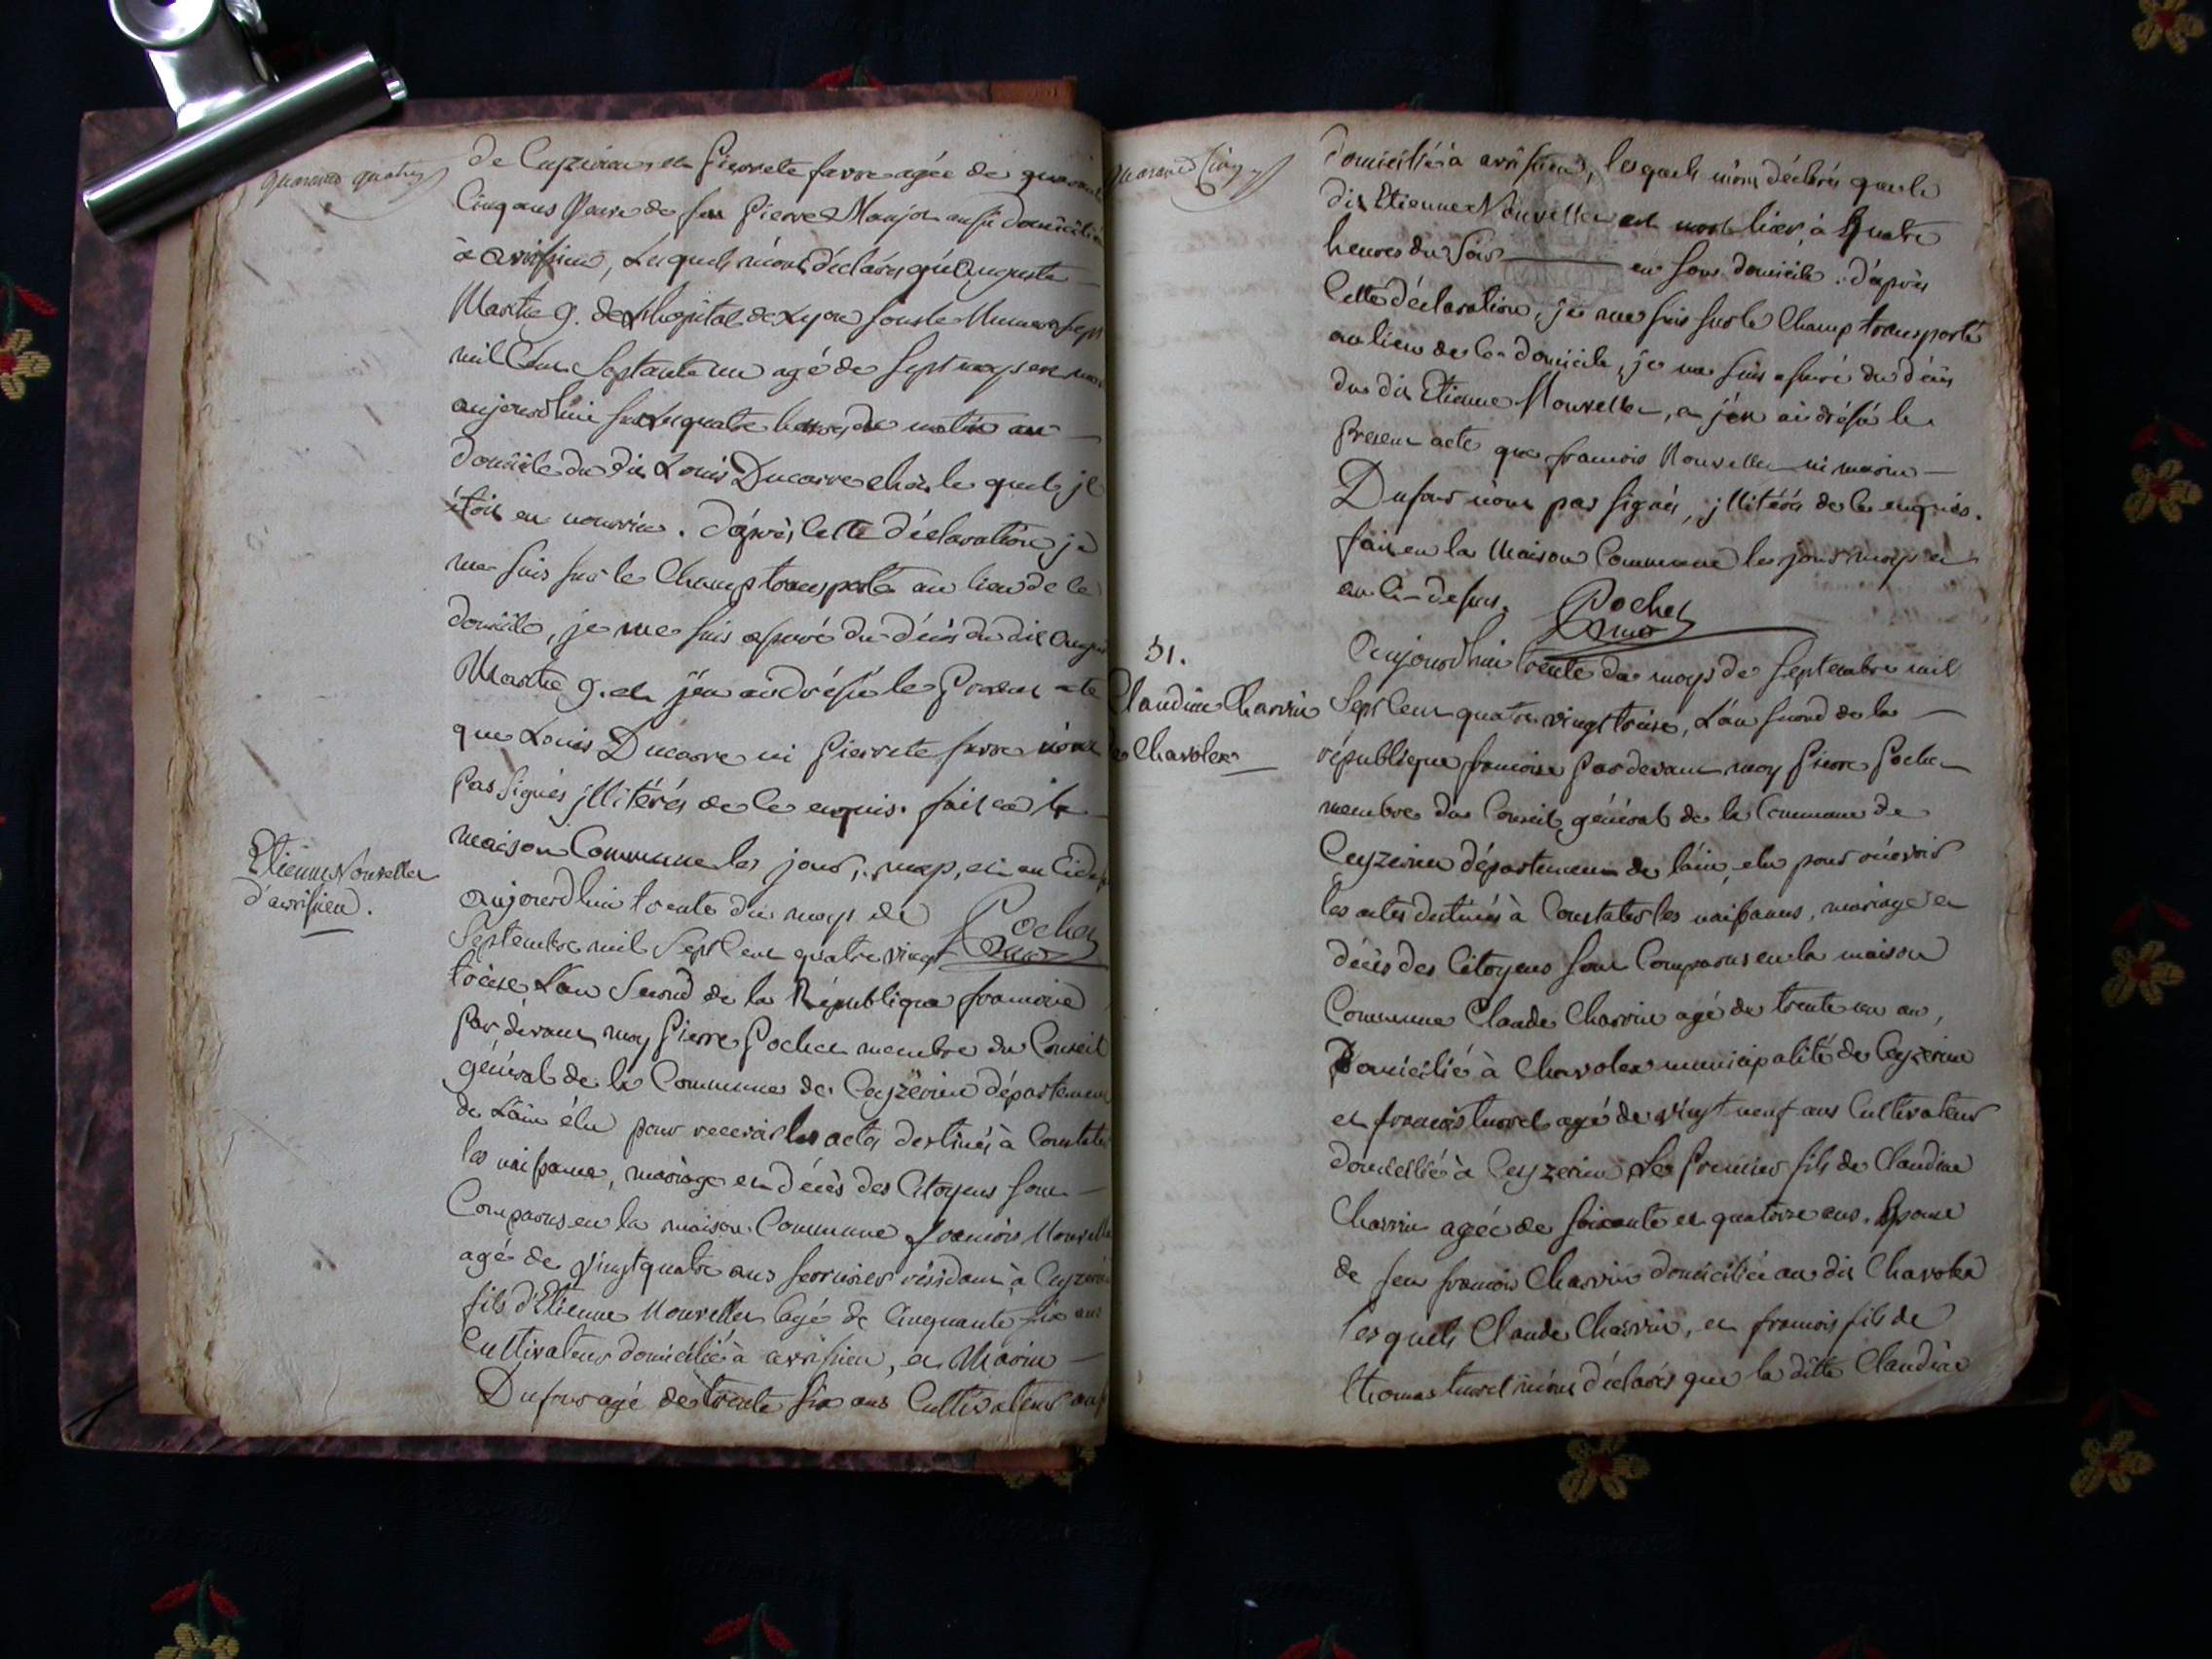 quarante quatre
de Ceyzerieu, et Pierrete favre agée de quarante
Cinq ans veuve de feu Pierre Monjot aussi domiciliée
à avrissieu, Lesquels m'ont déclarés qu'Auguste
Marthe 9. de L'hopital de Lyon sous le Numero sept
mil Cent Septante un agé de sept moys est mort
aujourdhui sur les quatre heures du matin au
domicile du dit Louis Ducarre chés le quel il
étoit en nourrice. d'après cette déclaration, je
me suis sur le Champ transporté au lieu de ce
domicile, je me suis assuré du décès du dit Auguste
Marthe 9. et j'en ai dréssé le Present acte
que Louis Ducarre ni Pierrete favre n'ont
Pas signés jllitérés de ce enquis. fait en la
maison Commune les jour, moys, et an Cidessus
Pochet
Etienne Nouvellet
d'avrissieu.
aujourdhui trente du moys de
Septembre mil Sept Cent quatre vingt
treise L'an Second de la République francoise
Par devant moy Pierre Pochet membre du Conseil
général de la Commune de Ceyzérieu département
de L'ain élu pour recevoir les actes destinés à Constater
les naissance, mariage et décès des Citoyens sont
Comparus en la maison Commune francois Nouvellet
agé de vingt quatre ans serrurier résidant à Ceyzerieu
fils d'Etienne Nouvellet agé de Cinquante six ans
Cultivateur domicilié à avrissieu, et Marin
Dufour agé de trente six ans Cultivateur aussi
quarante Cinq
domicilié à avrissieu, les quels m'ont déclarés que le
dit Etienne Nouvellet est mort hier, à quatre
heures du soir en son domicile. d'après
Cette déclaration, je me suis sur le Champ transporté
au lieu de ce domicile, je me suis assuré du décès
du dit Etienne Nouvellet, et j'en ai dréssé le
Present acte que francois Nouvellet ni marin
Dufour n'ont pas signés, jllitérés de ce enquis.
fait en la Maison Commune les jour moys et
an Ci-dessus. Pochet
51.
Claudine Charvin
de Chavolex
Aujourdhui trente du moys de Septembre mil
Sept Cent quatre vingt treise, L'an second de la
république francoise Par devant moy Pierre Pochet
membre du Conseil général de la Commune de
Ceyzerieu département de l'ain, elu pour recevoir
les actes destinés à Constater les naissances, mariage et
décès des Citoyens sont Comparus en la maison
Commune Claude Charvin agé de trente un an,
Domicilié à Chavolex municipalité de Ceyzerieu
et francois turrel agé de vingt neuf ans Cultivateur
domicilié à Ceyzerieu, Le Premier fils de Claudine
Charvin agée de soixante et quatorze ans. Epouse
de feu francois Charvin domiciliée au dit Chavolex
les quels Claude Charvin, et francois fils de
thomas turrel m'ont déclarés que la ditte Claudine